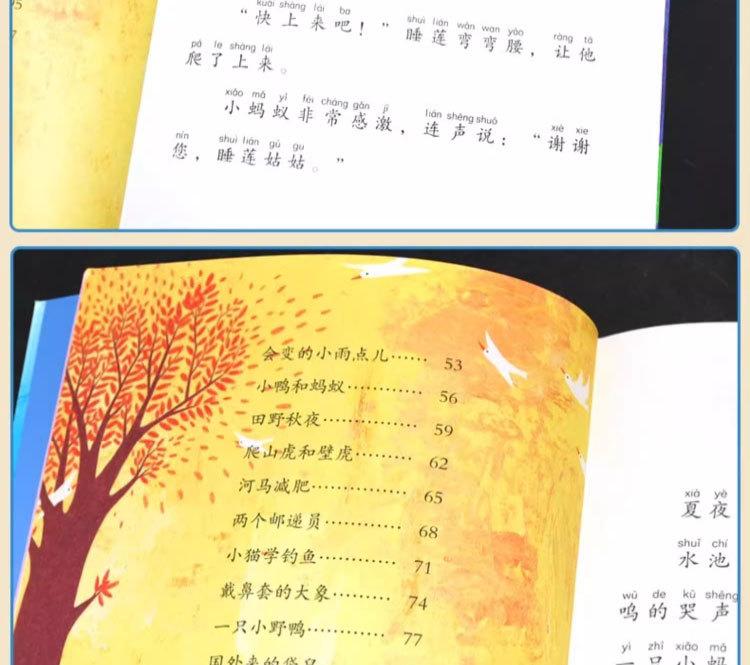 5
7
kuài shàng lái ba shuì lián wān wan yāo ràng tā
“快上来吧！”睡莲弯弯腰，让他
pá le shàng lái
爬了上来。
xiǎo mǎ yǐ fēi cháng gǎn jī lián shēng shuō xiè xie
小蚂蚁非常感激，连声说：“谢谢
nín shuì lián gū gu
您，睡莲姑姑。”
会变的小雨点儿…… 53
小鸭和蚂蚁………… 56
田野秋夜…………… 59
爬山虎和壁虎……… 62
河马减肥…………… 65
两个邮递员………… 68
小猫学钓鱼………… 71
戴鼻套的大象……… 74
一只小野鸭………… 77
国外来的袋鼠
xià yè
夏夜
shuǐ chí
水池
wū de kū shēng
呜的哭声
yì zhī xiǎo mǎ
一只小蚂